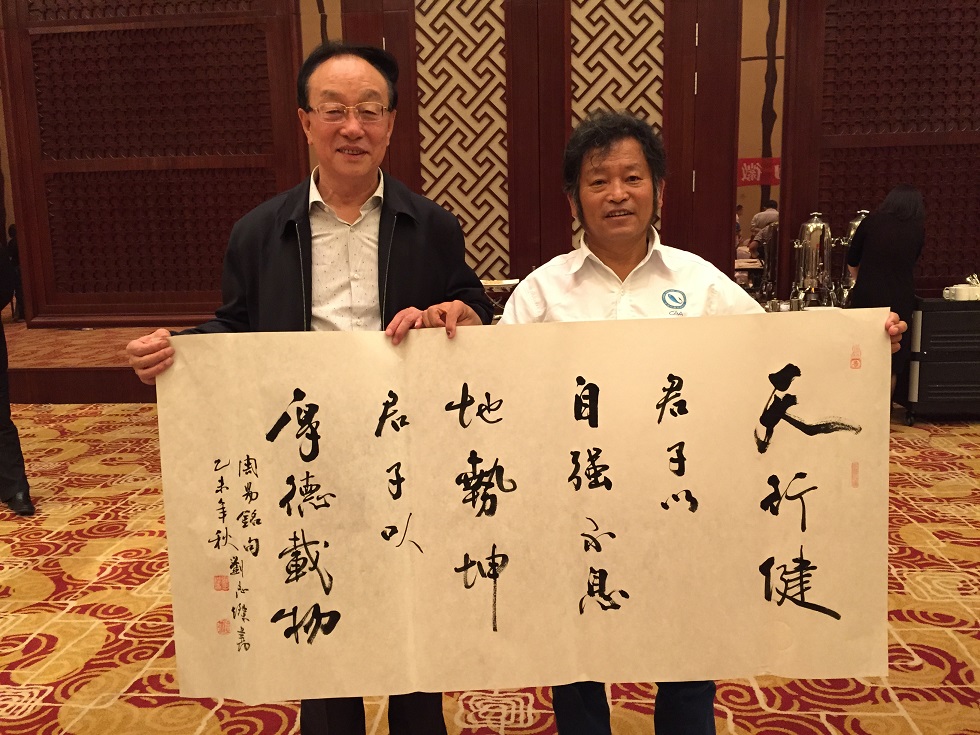 天行健
君子以
自强不息
地勢坤
君子以
厚德載物
周易銘句
乙未年秋 劉志書
微